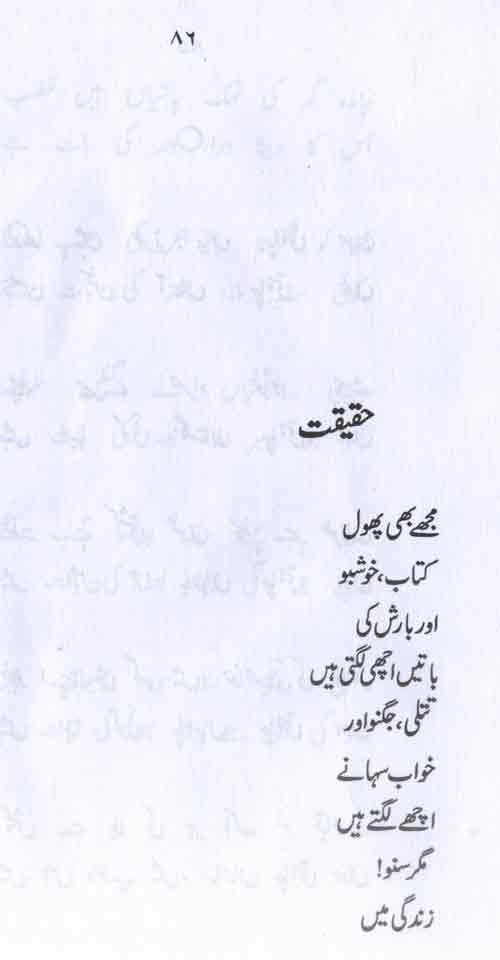 ۸۶
حقیقت
مجھے بھی پھول
کتاب، خوشبو
اور بارش کی
باتیں اچھی لگتی ہیں
تتلی، جگنو اور
خواب سہانے
اچھے لگتے ہیں
مگر سنو!
زندگی میں